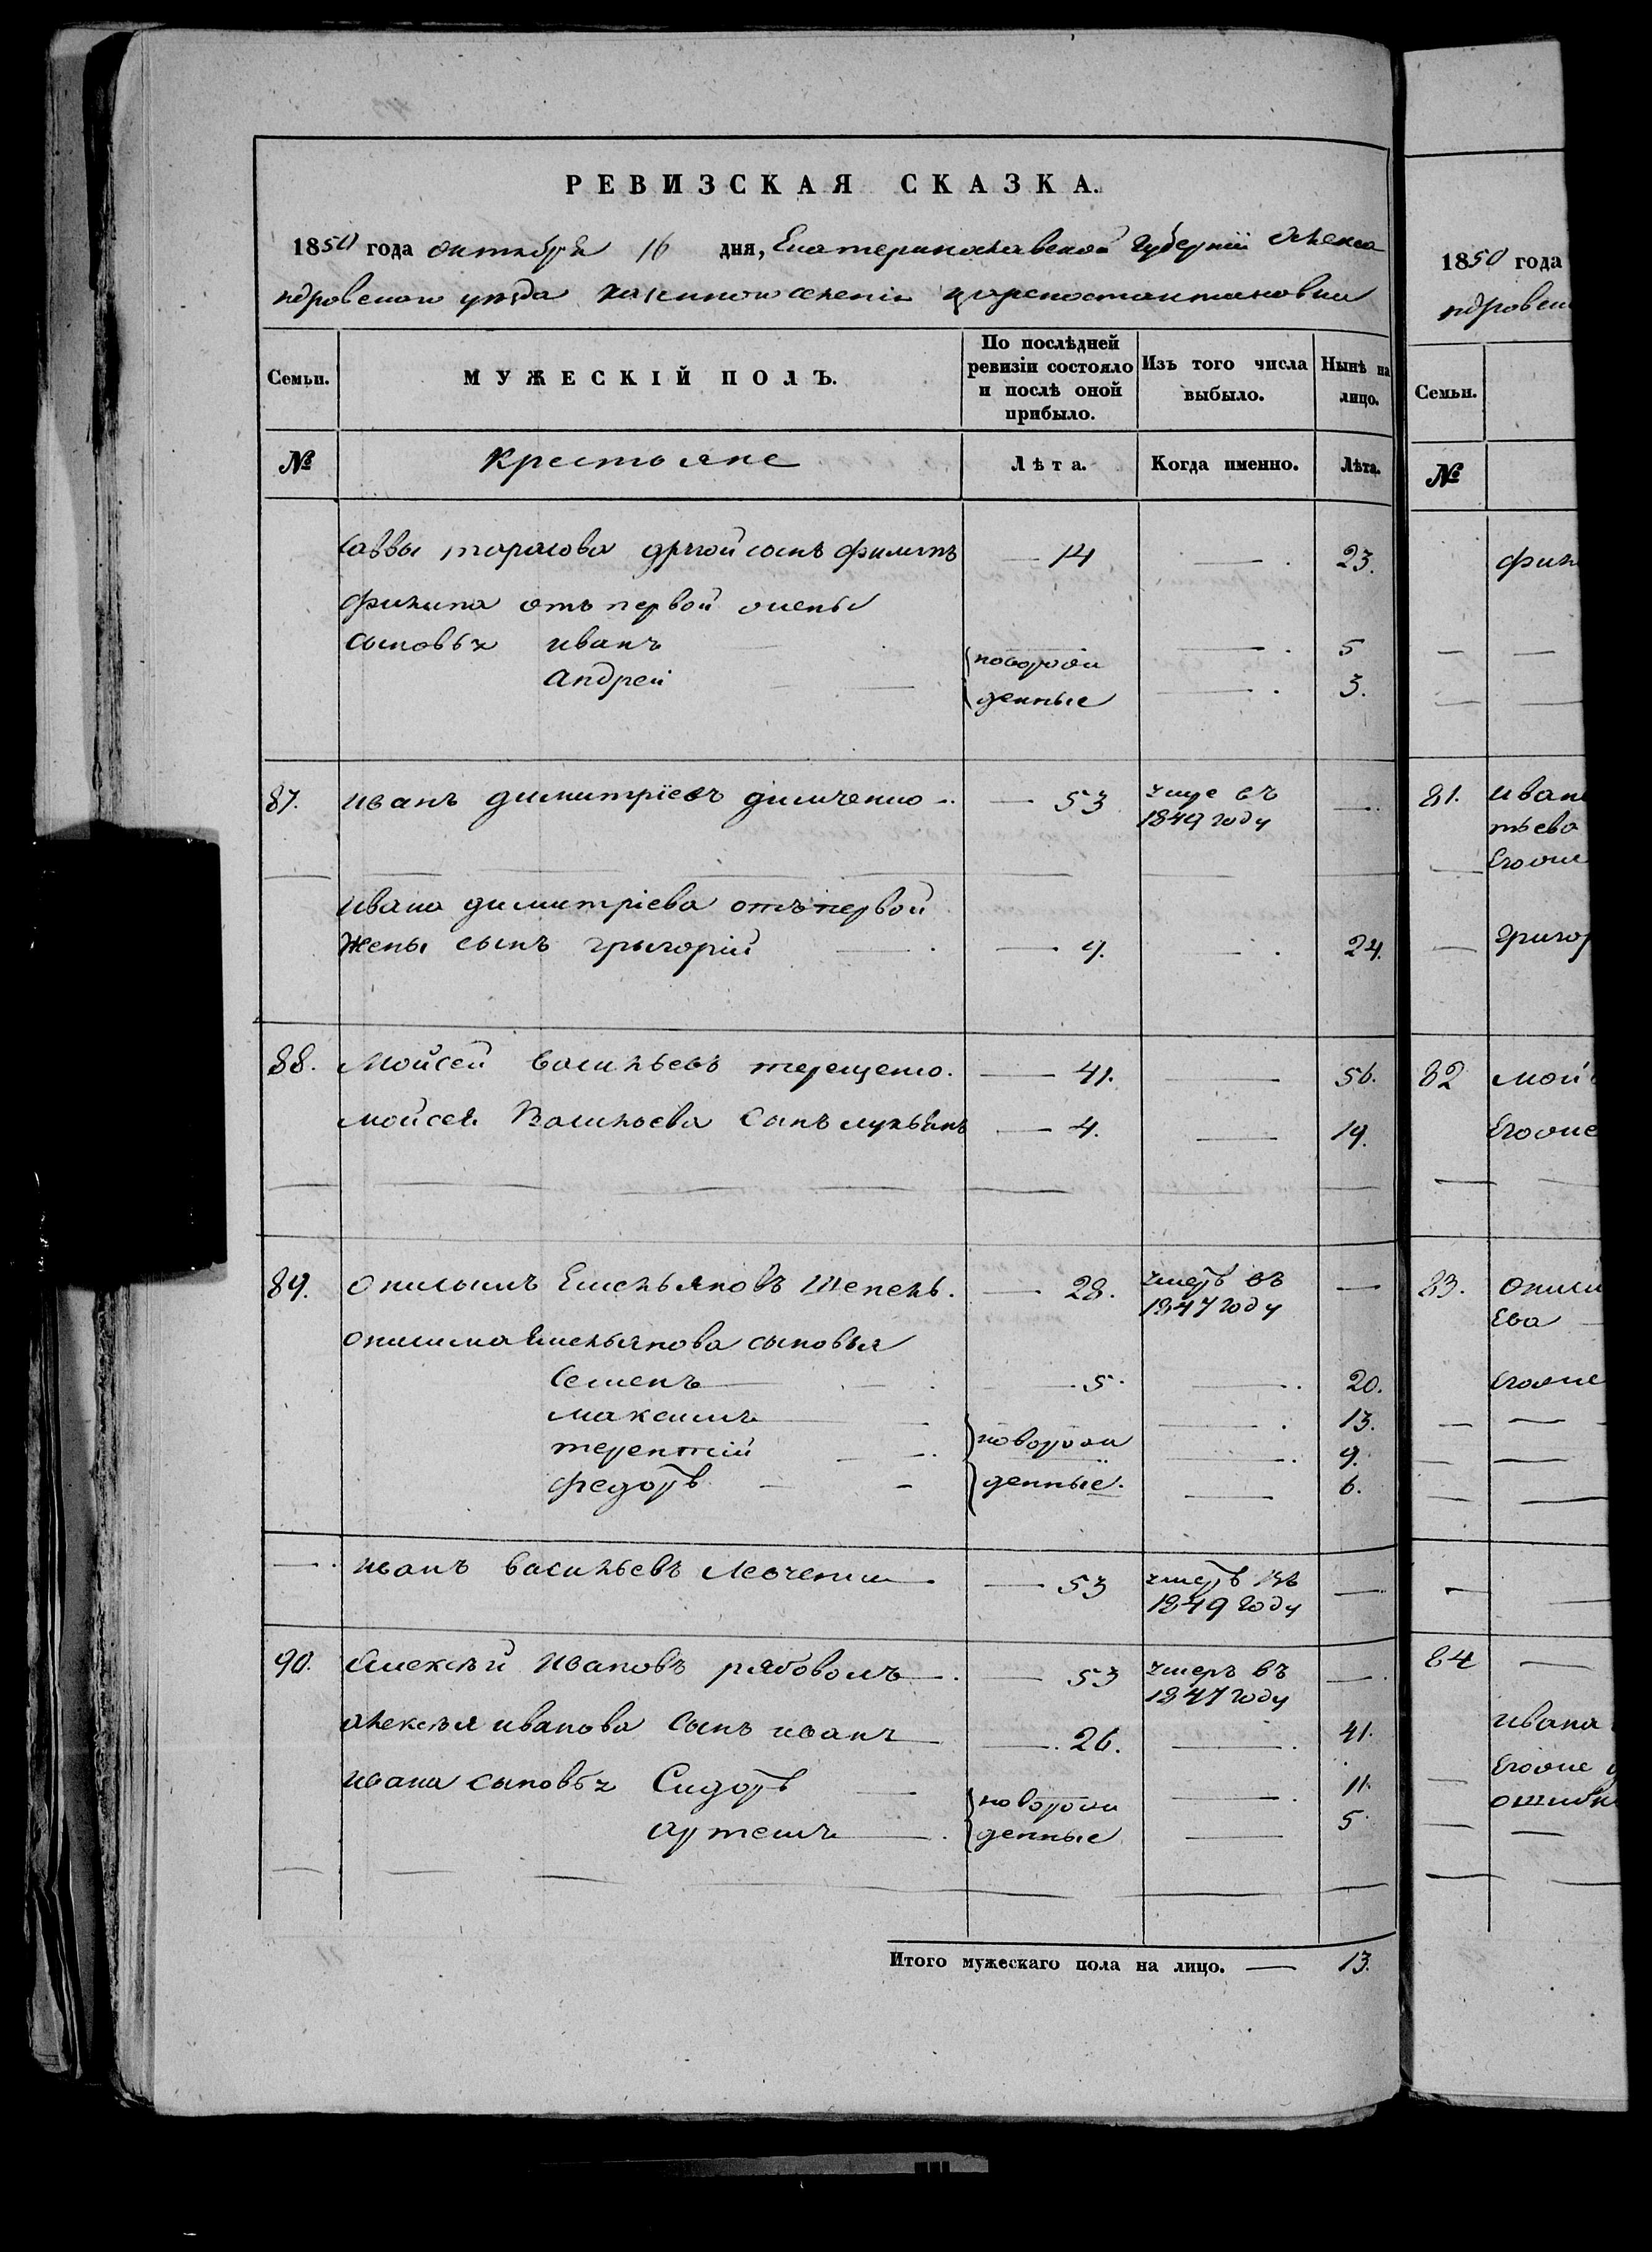 РЕВИЗСКАЯ СКАЗКА.
1850 года октября 16 дня, Екатеринославской Губерніи Алекса
ндровскаго уезда казенного селенія Цареконстантиновки
Семьи. МУЖЕСКІЙ ПОЛЪ. По послѣдней ревизіи состояло и послѣ оной прибыло. Изъ того числа выбыло. Нынѣ на лицо.
№ Крестьяне Лѣта. Когда именно. Лѣта.
Саввы тарасова другой сынъ филипъ — 14 — 23.
филипа отъ первой жены
сыновья иванъ новорож — 5
андрей денные — 3.
87. иванъ димитріевъ димченко — 53 умре въ 1849 году —
ивана димитріева отъ первой
жены сынъ григорій — 9. — 24.
88. Мойсей васильевъ терещенко. — 41. — 56.
мойсея Васильева Сынъ лукьянъ — 4. — 19.
89. онисимъ Емельяновъ Шепель. — 28. умеръ въ 1847 году —
онисима Емельянова сыновья
Семенъ — 5. — 20.
максимъ — 13.
терентій новорож — 9.
федоръ денные. — 6.
— иванъ васильевъ Левченко — 53 умеръ въ 1849 году —
90. Алексѣй Ивановъ рябоволъ — 53 умеръ въ 1847 году —
алексѣя иванова Сынъ иванъ — 26. — 41.
ивана сыновья Сидоръ новорож — 11.
артемъ денные — 5.
Итого мужескаго пола на лицо. — 13.
1850 года
ндровск
Семьи.
№
81. Иван
тьева
Егоже
григор
82 мой
Егоже
83. Ониси
Ева
Егоже
84 —
ивана
Егоже
ошибк